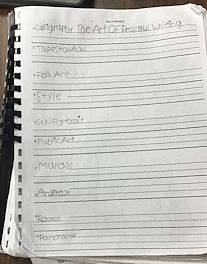 • Calligraphy The Art Of Beautiful Writing
• Tapestry A.W
• Folk Art
• Style
• Self-Portrait
• Public Art
• Murals
• Architect
• Rococo
• Panorama